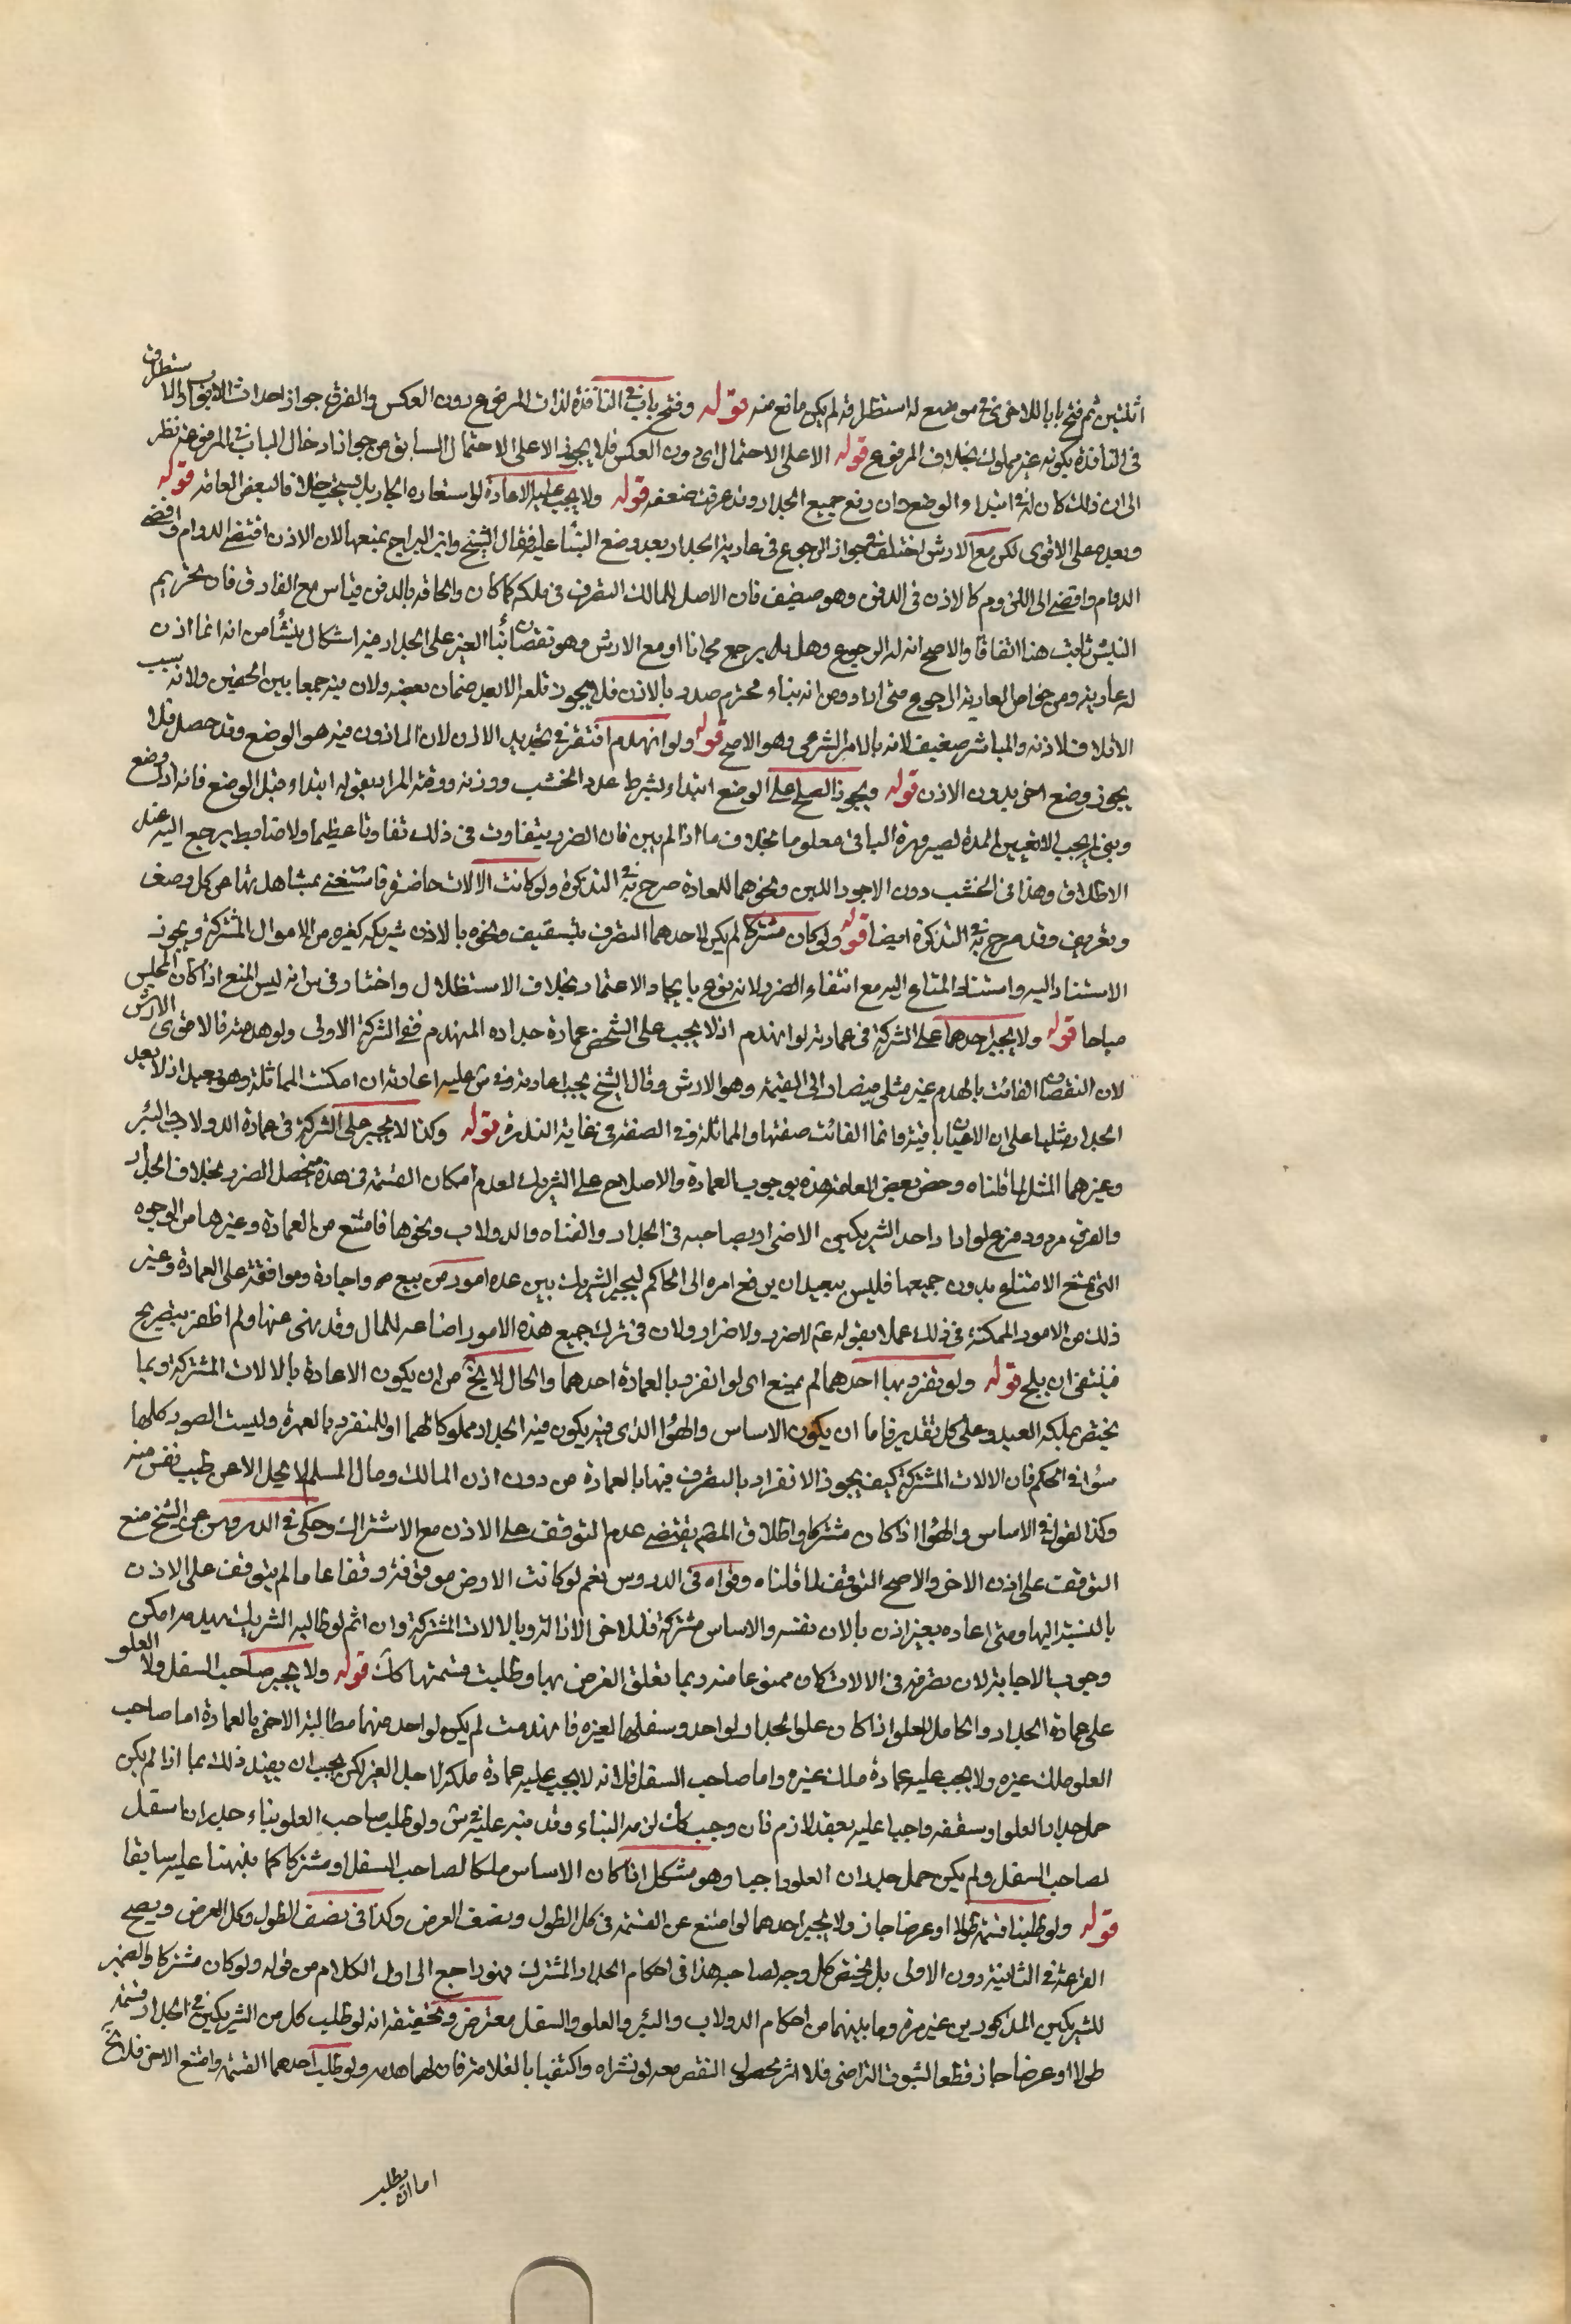 اثلثين ثم فتح بابا للاخرى في موضع له استطراقه لم يكن مانع منه قوله وفتح باب في النافذة لذات المرفوع دون العكس والفرق جواز احداث الابواب والاستطراق
في النافذة بكونه غير مملوك بخلاف المرفوع قوله الا على الاحتمال اى دون العكس فلا يجوز الا على الاحتمال السابق من جواز ادخال الباب في المرفوعة نظر
الى ان ذلك كان له في ابتداء الوضع وان رفع جميع الجدار وقد عرفت ضعفه قوله ولا يجب عليه الاعادة لو استعاره الجار بل يستحب خلافا لبعض العامة قوله
وبعده على الاقوى لكن مع الارش اختلف في جواز الرجوع في عارية الجدار بعد وضع البناء عليه فقال الشيخ وابن البراج بمنعه الان الاذن اقتضى الدوام واقتضى
الدوام وافضى الى اللزوم كالاذن في الدفن وهو ضعيف فان الاصل للمالك التصرف في ملكه كما كان والحاقه بالدفن قياس مع الفارق فان تحريم
النبش ثابت هنا اتفاقا والاصح انه له الرجوع وهل يرجع مجانا او مع الارش وهو نقصان بناء الغير على الجدار فيه اشكال ينشأ من انه انما اذن
له عارية ومن خواص العارية الرجوع متى اراد ومن انه بناء محترم صدر بالاذن فلا يجوز قلعه الا بعد ضمان نقصه ولان فيه جمعا بين الحقين ولانه سبب
الاتلاف لاذنه والمباشر ضعيف لانه بالامر الشرعى وهو الاصح قوله ولو انهدم افتقر في تجديد الاذن لان الماذون فيه هو الوضع وقد حصل فلا
يجوز وضع اخر بدون الاذن قوله ويجوز الصلح على الوضع ابتداء بشرط عدد الخشب ووزنه ووقته المراد بقوله ابتداء قبل الوضع فانه اذا وضع
وبنى لم يجب الا تعيين المدة لصيرورة الباقي معلوما بخلاف ما اذا لم يبن فان الضرر يتفاوت في ذلك تفاوتا عظيما ولا ضابط يرجع اليه عند
الاطلاق وهذا في الخشب دون الاجر واللبن ونحوهما للعادة صرح به في التذكرة ولو كانت الالات حاضرة استغنى بمشاهدتها عن كل وصف
وتعريف وقد صرح به في التذكرة ايضا قوله ولو كان مشتركا لم يكن لاحدهما التصرف بتسقيف ونحوه بالاذن شريكه كغيره من الاموال المشتركة ويجوز
الاستناد اليه واسناد المتاع اليه مع انتفاء الضرر لانه نوع بايجاد الاعتماد بخلاف الاستظلال واختار في س انه ليس المنع اذا كان المجلس
مباحا قوله ولا يجبر احدهما على الشركة في عمارته لو انهدم اذ لا يجب على الشخص عمارة جداره المنهدم ففى الشركة الاولى ولو هدمه فالاقوى الارش
لان النقصان الفائت بالهدم غير مثلى فيصار الى القيمة وهو الارش وقال الشيخ يجب اعادته وفي س عليه اعادته ان امكنت المماثلة وهو بعيد اذ لا يعد
الجدار مثليا على ان الاعيان باقية وانما الفائت صفتها والمماثلة في الصفة في غاية الندرة قوله وكذا لا يجبر على الشركة في عمارة الدولاب والبئر
وغيرهما المثل لما قلناه وخص بعض العامة هذه بوجوب العمارة والاصلاح على الشريك لعدم امكان القسمة في هذه فيحصل الضرر بخلاف الجدار
والفرق مردود فرع لو اراد احد الشريكين الاضرار بصاحبه في الجدار والقناة والدولاب ونحوها فامتنع من العمارة وغيرها من الوجوه
التى يمتنع الانتفاع بدون جميعها فليس ببعيد ان يرفع امره الى الحاكم ليجبر الشريك بين عدة امور من بيع واجارة وموافقة على العمارة وغير
ذلك من الامور الممكنة في ذلك عملا بقوله عم لا ضرر ولا ضرار ولان في ترك جميع هذه الامور اضاعة للمال وقد نهى عنها ولم اظفر بتصريح
فينبغى ان يلح قوله ولو تفرد بها احدهما لم يمنع اى لو انفرد بالعمارة احدهما والحال لا يخ من ان يكون الاعادة بالالات المشتركة وبما
يختص بملكه العبد وعلى كل تقدير فاما ان يكون الاساس والهواء الذى فيه يكون فيه الجدار مملوكا لهما او للمنفرد بالعمرة وليست الصور كلها
سواء في الحكم فان الالات المشتركة كيف يجوز الانفراد بالتصرف فيها بالعمارة من دون اذن المالك ومال المسلم لا يحل الا عن طيب نفس منه
وكذا القول في الاساس والهواء اذا كان مشتركا واطلاق المص يقتضى عدم التوقف على الاذن مع الاشتراك وحكى في الدروس عن الشيخ منع
التوقف على اذن الاخر والاصح التوقف لما قلناه وقواه في الدروس نعم لو كانت الارض موقوفة وقفا عاما لم يتوقف على الاذن
بالنسبة اليها ومتى اعاده بغير اذن بالات نفسه والاساس مشتركة فللاخر الازالة وبالالات المشتركة وان اثم لو طالبه الشريك بهدمه امكن
وجوب الاجابة لان تصرفه في الالات كان ممنوعا منه ربما تعلق الغرض بها وطلبت قسمتها كانت قوله ولا يجبر صاحب السفل ولا العلو
على عمارة الجدار والحامل للعلو اذا كان علو الجدار لواحد وسفلها لغيره فانهدمت لم يكن لواحد منهما مطالبة الاخر بالعمارة اما صاحب
العلو ملك غيره ولا يجب عليه عمارة ملك غيره واما صاحب السفل فلانه لا يجب عليه عمارة ملكه لاجل الغير لكن يجب ان يقيد ذلك بما اذا لم يكن
حمل جدار العلو وسقفه واجبا عليه بعقد لازم فان وجب كانت لزمه البناء وقد نبه عليه في س ولو طلب صاحب العلو بناء جدران سفل
لصاحب السفل ولم يكن حمل جدران العلو واجبا وهو مشكل اذا كان الاساس ملكا لصاحب السفل او مشتركا كما نبهنا عليه سابقا
قوله ولو طلبنا قسمته طولا او عرضا جاز ولا يجبر احدهما لو امتنع عن القسمة في كل الطول ونصف العرض وكذا في نصف الطول وكل العرض ويصح
القرعة في الثانية دون الاولى بل يختص كل وجه لصاحبه هذا في احكام الجدار المشترك فهو راجع الى اول الكلام من قوله ولو كان مشتركا والضمير
للشريكين المذكورين غير مرة وما بينهما من احكام الدولاب والبئر والعلو والسفل معترض وتحقيقه انه لو طلب كل من الشريكين في الجدار قسمته
طولا او عرضا جاز قطعا لثبوت التراضى فلا اثر لحصول النقص معه لو نشراه واكتفيا بالعلامة فاولهما هدمه ولو طلب احدهما القسمة وامتنع الاخر فلا يخ
اما ان يطلب